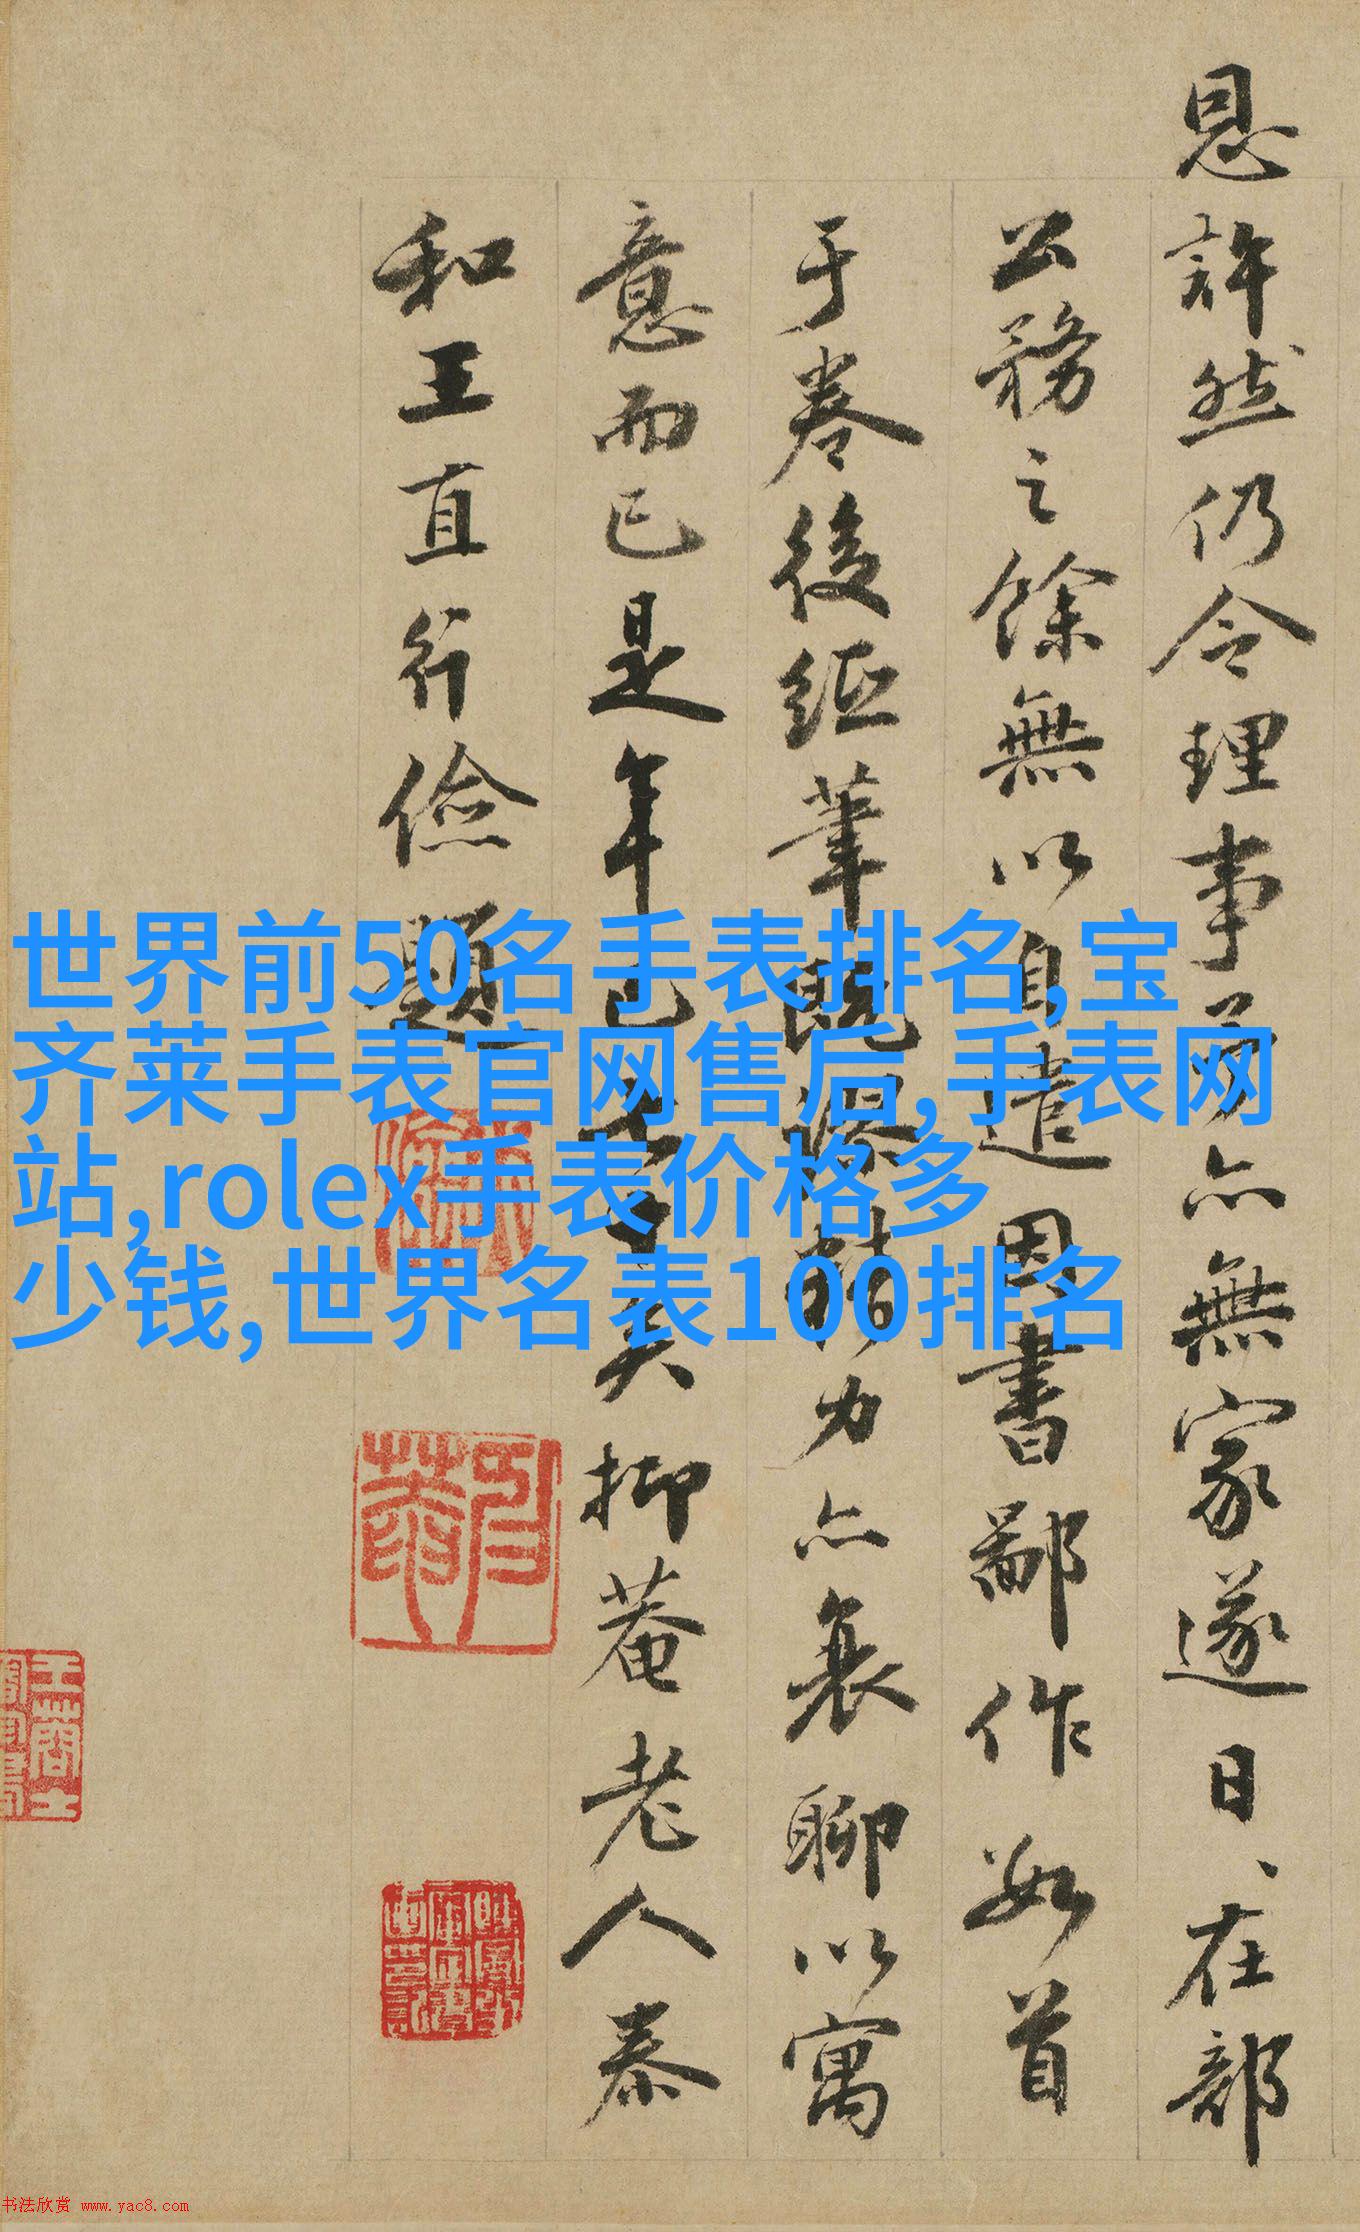 恩許然仍令理事亦無家遂日、在部
公務之餘無以自遣因書鄙作數首
于卷後紙筆既謬力亦衰聊以寓
意而已是年已七十矣抑菴老人泰
和王直行儉題
世界前50名手表排名,宝
齐莱手表官网售后,手表网
站,rolex手表价格多
少钱,世界名表100排名
书法欣赏 www.yac8.com